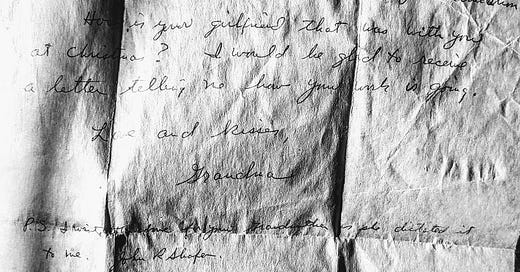 How is your girlfriend that was with you
at Christmas? I would be glad to receive
a letter telling me how your work is going.
Love and Kisses,
Grandma
P.S. I for your Grandmother as she dictates it
to me. John R Shafer.